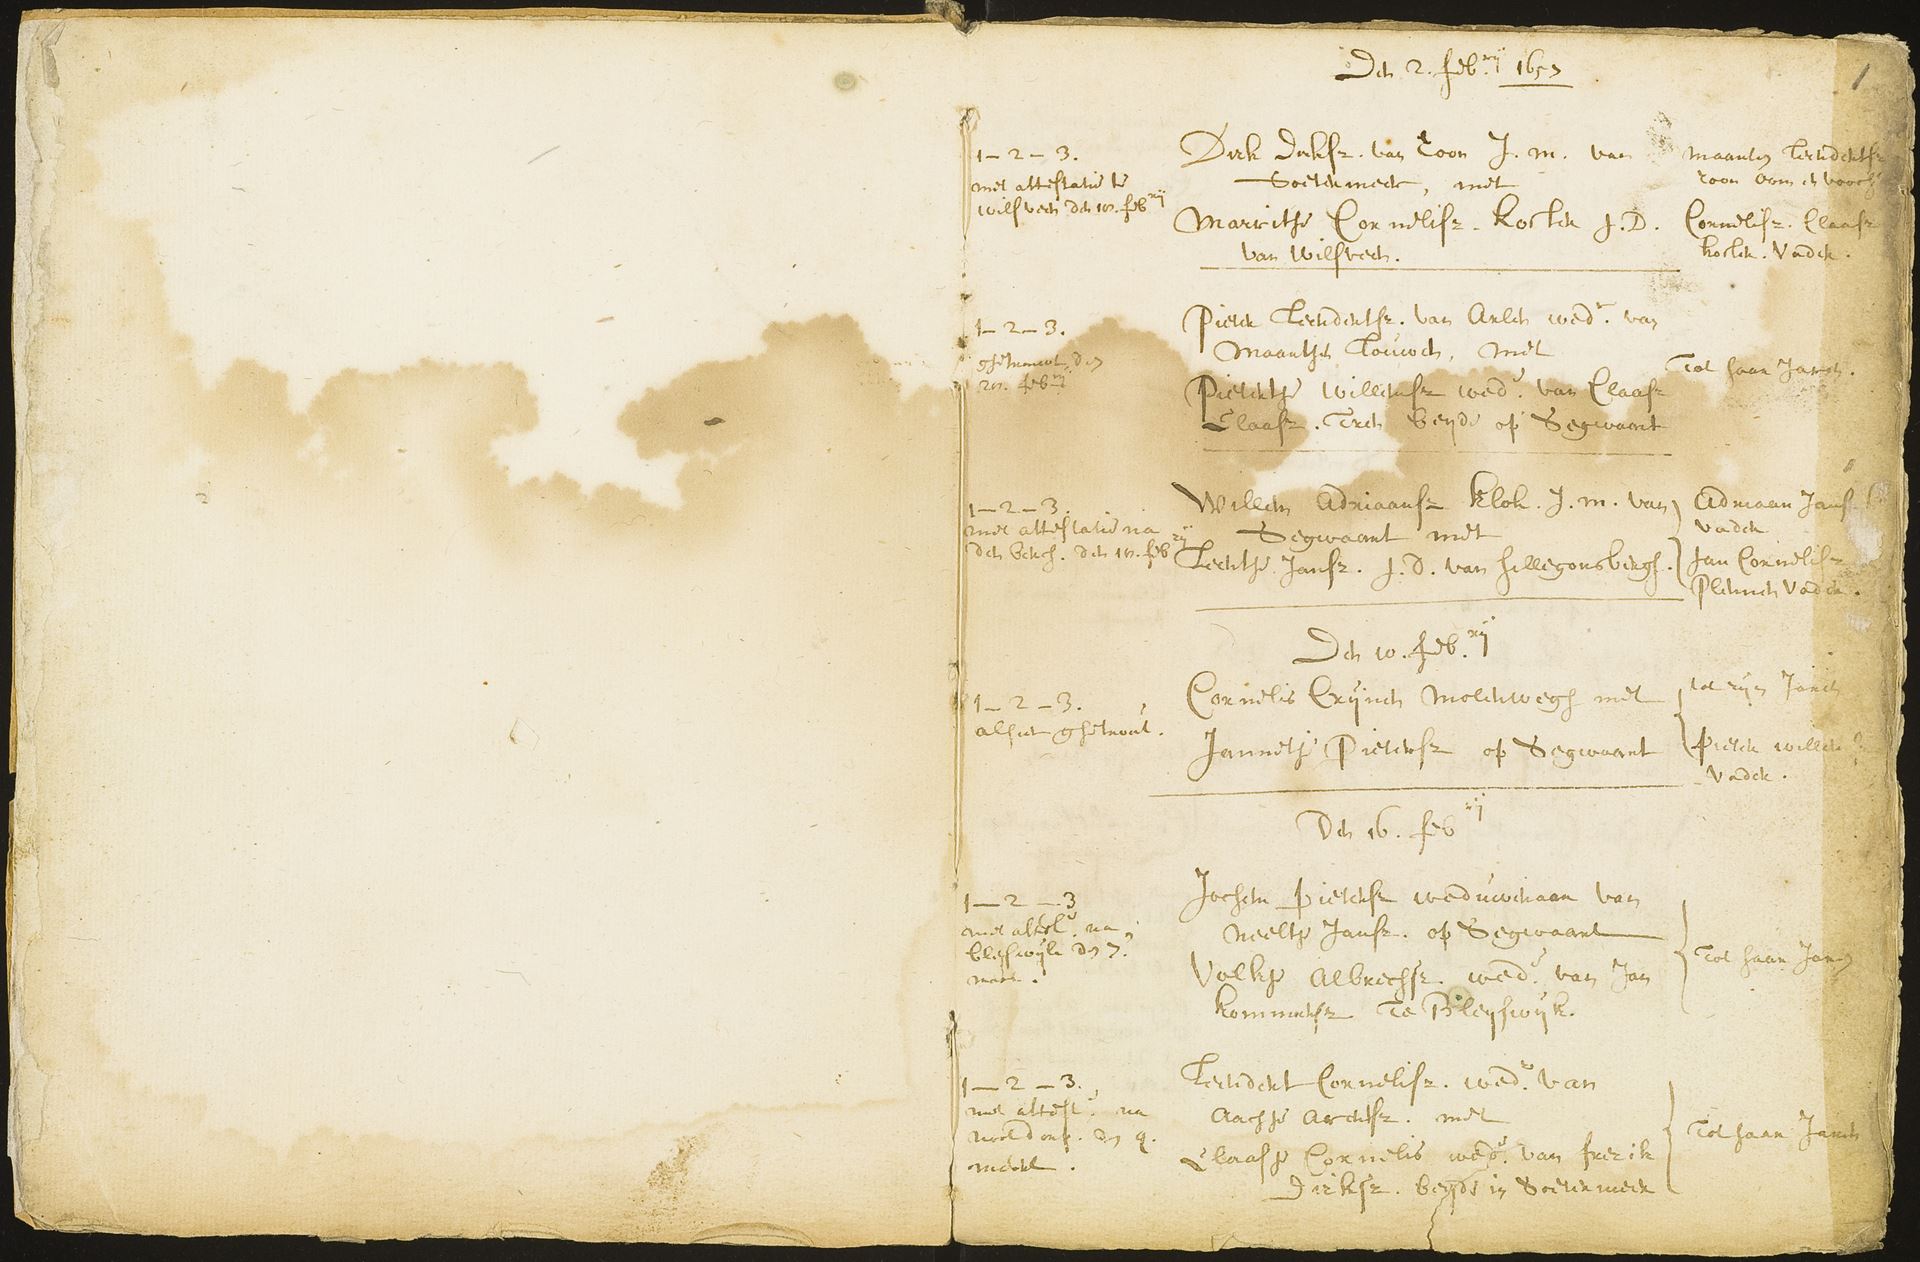 Den 2. feb.rij 1657
1
1 – 2 – 3.
met attestatie te
wilsveen den 18. feb.rij
Dirk dirksz. van Roon J. m. van
Soetermeer, met
Marritje Cornelisz. koster J. D.
van Wilsveen.
Maarten Leendertsz
roon oom en voocht
Cornelisz. Claasz
koster. Vader.
1 – 2 – 3.
ghetrouwt den
feb.rij
Pieter Leendertsz. van Arlen wedr. van
Maartje Louwen, met
Pietertje Willemsz wede. van Claasz
Claasz. beyde op Segwaart
Tot haar Jaren.
1 – 2 – 3.
met attestatie na
den Berch. den 18. feb.rij
Willem Adriaansz klok. J. m. van
Segwaart met
Leentje Jansz. J. D. van hillegonsbergh.
Adriaan Jansz
vader
Jan Cornelisz
Vader.
Den 10. feb.rij
1 – 2 – 3.
alhier ghetrout.
Cornelis Crijnen Molenwegh met
Jannetje Pietersz op Segwaart
tot zijn Jaren
Pieter willem
Vader.
Den 16. feb.rij
1 – 2 – 3
met attest. na
bleyswijk den 7.
maart.
Jochem pietersz weduwenaar van
Neeltje Jansz. op Segwaart
Volkje Albrechsz. wede. van Jan
kommersz Te Bleyswijk.
Tot haar Jaren
1 – 2 – 3.
met attest. na
den 9.
meert.
Leendert Cornelisz. wedr. van
Aachje Arentsz. met
Claasje Cornelis wede. van frerik
Dirksz. beyde in Soetermeer
Tot haar Jaren